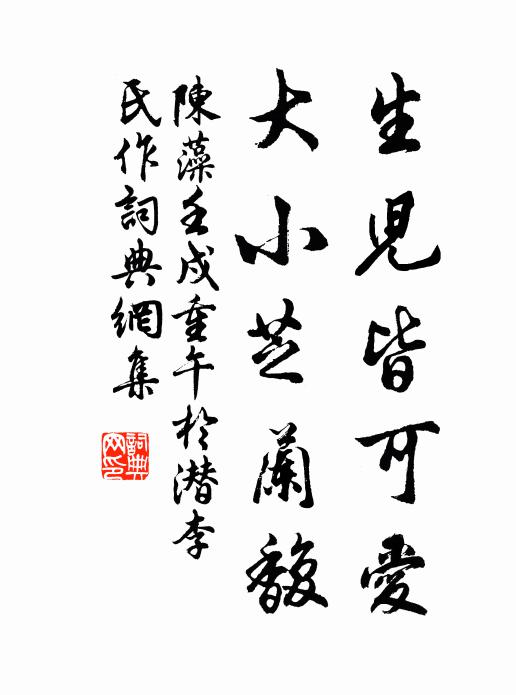 生児皆可愛
大小芝蘭馥
陳藻壬戌重午於潛李
民作詞典網集
詞典
网印